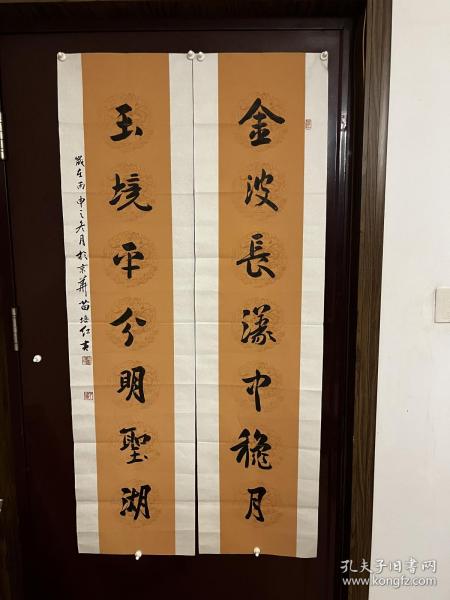 金波長漾中穐月
玉境平分明聖湖
歲在丙申之冬月於京華苗培红书
孔夫子旧书网
www.kongfz.com